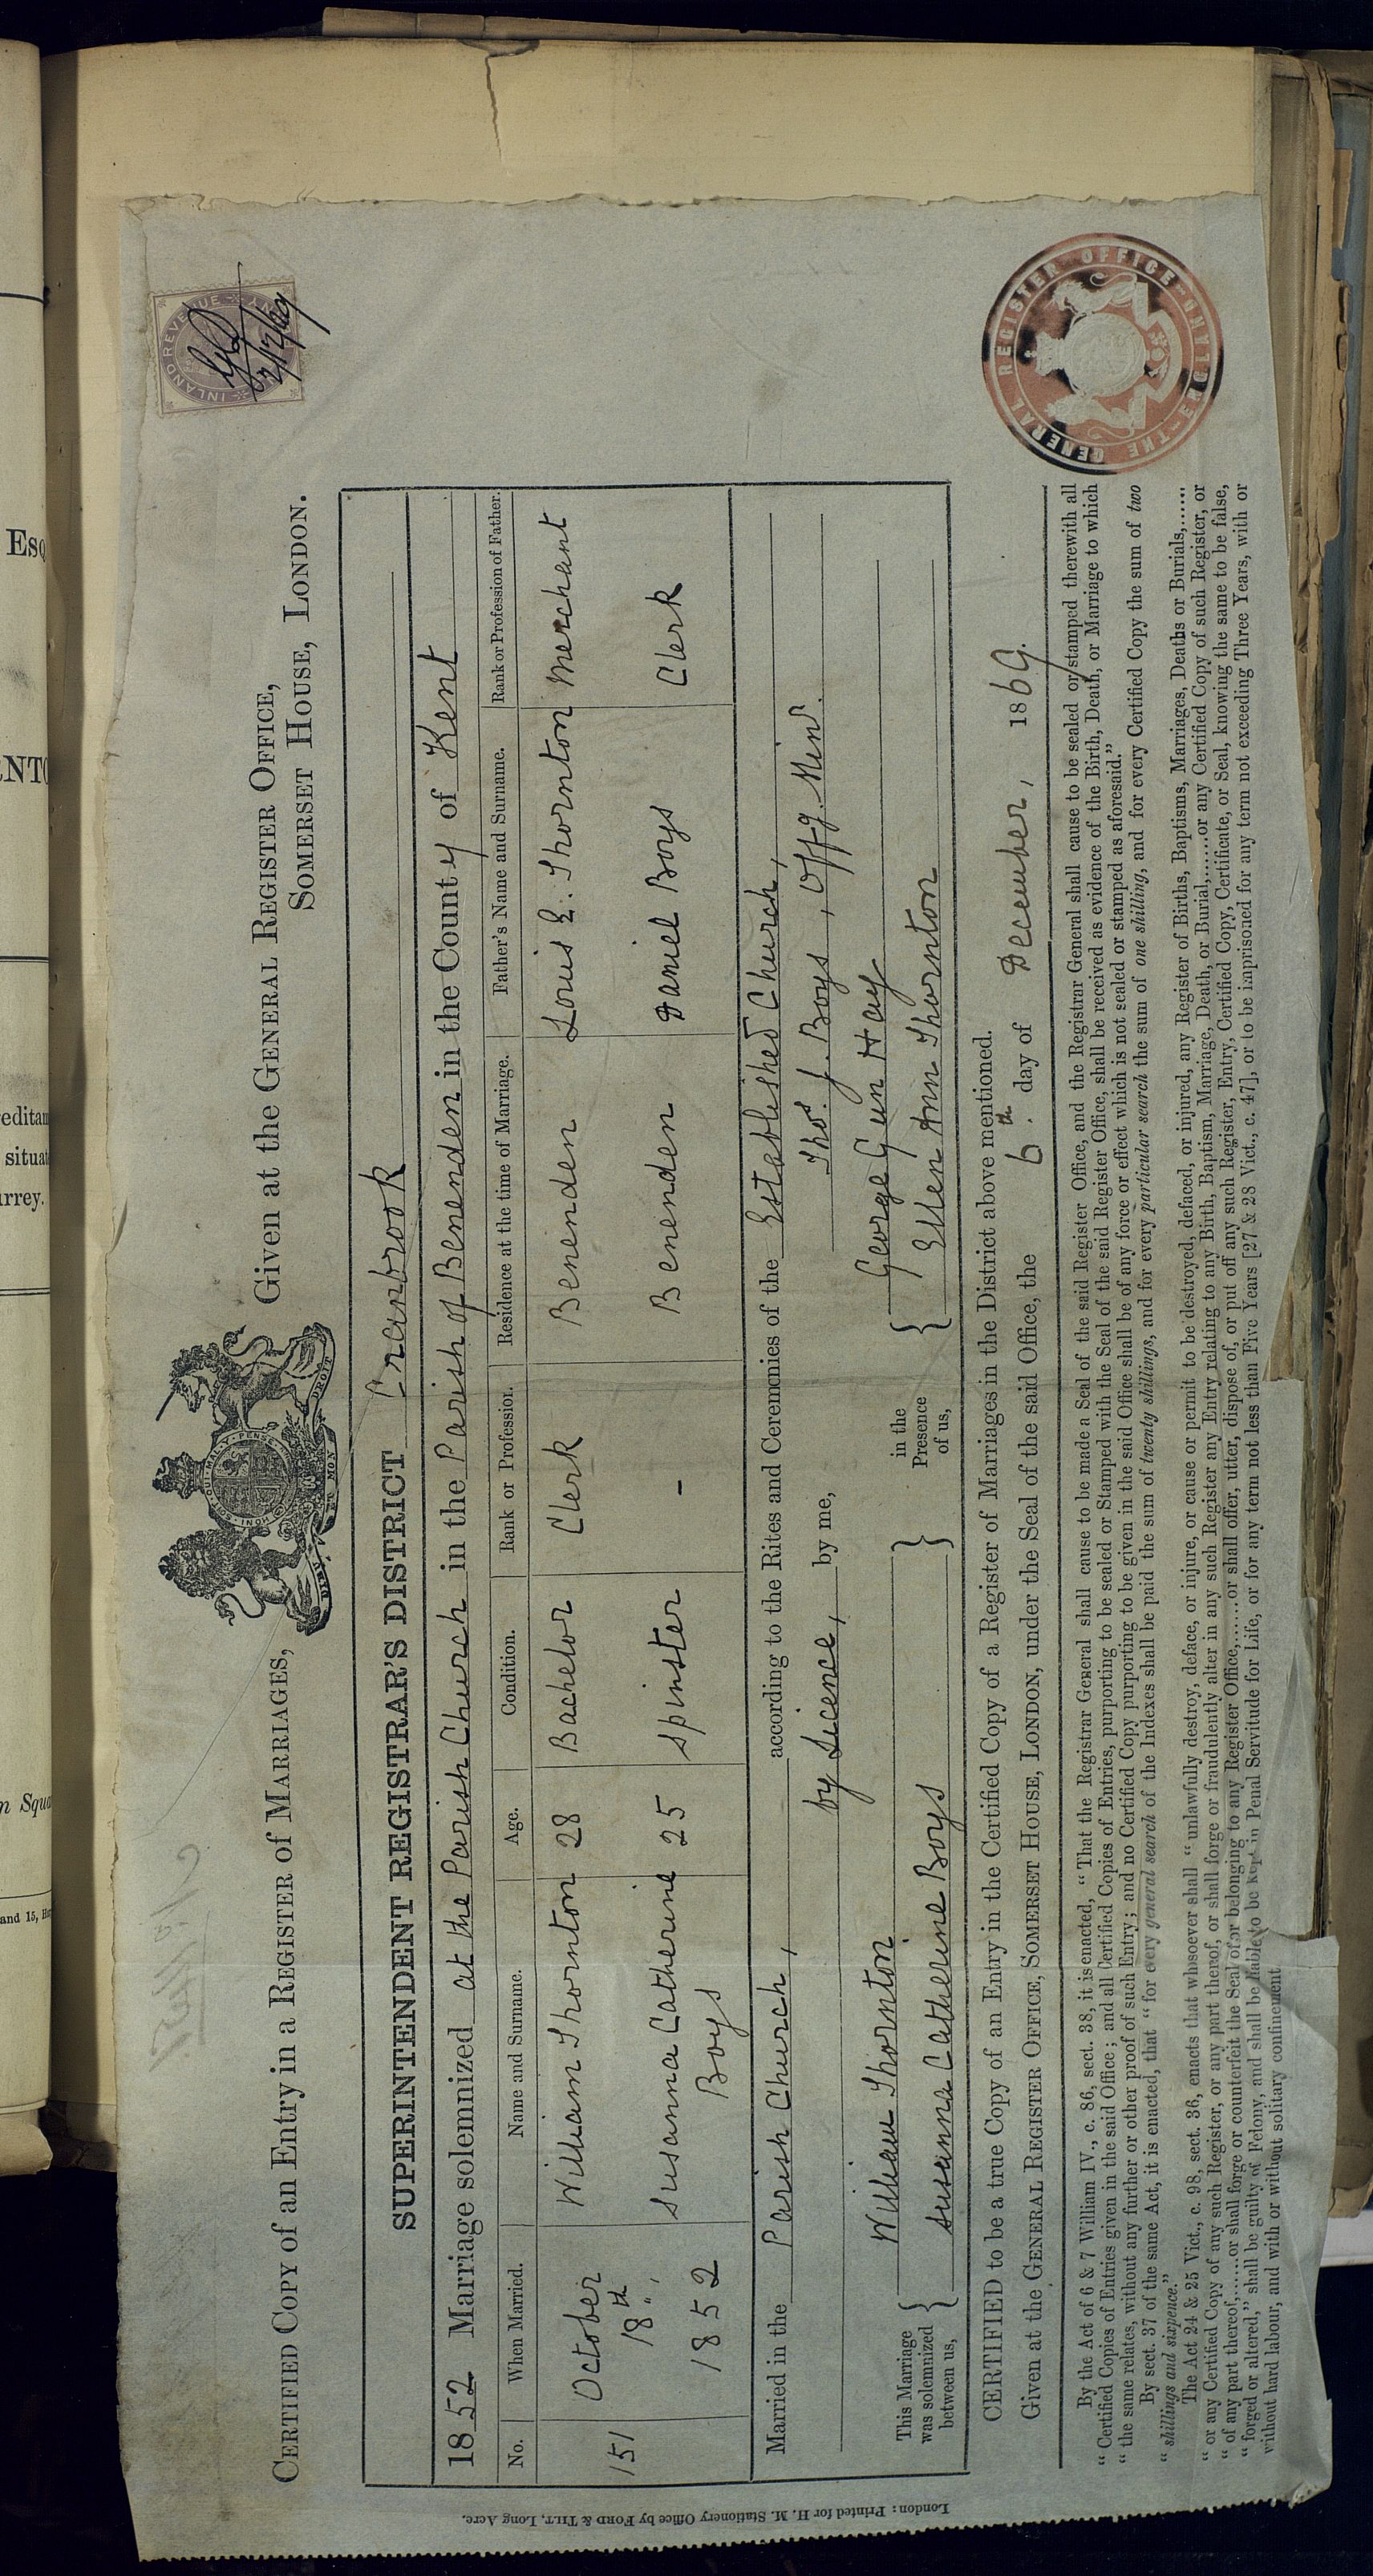 CERTIFIED COPY of an Entry in a REGISTER OF MARRIAGES,
Given at the GENERAL REGISTER OFFICE,
SOMERSET HOUSE, LONDON.
INLAND REVENUE
HONI · SOI · QUI · MAL · Y · PENSE
DIEU ET MON DROIT
SUPERINTENDENT REGISTRAR'S DISTRICT Cranbrook
1852 Marriage solemnized at the Parish Church in the Parish of Benenden in the County of Kent
No. When Married. Name and Surname. Age. Condition. Rank or Profession. Residence at the time of Marriage. Father's Name and Surname. Rank or Profession of Father.
151 October 18th, 1852 William Thornton 28 Bachelor Clerk Benenden Louis E. Thornton Merchant
Susanna Catherine Boys 25 Spinster - Benenden Daniel Boys Clerk
Married in the Parish Church, according to the Rites and Ceremonies of the Established Church,
by Licence, by me, Thos. J. Boys, Offg. Minr.
This Marriage was solemnized between us, { William Thornton } in the Presence of us, { George Gun Hay
Susanna Catherine Boys Ellen Ann Thornton
CERTIFIED to be a true Copy of an Entry in the Certified Copy of a Register of Marriages in the District above mentioned.
Given at the GENERAL REGISTER OFFICE, SOMERSET HOUSE, LONDON, under the Seal of the said Office, the 6th. day of December, 1869.
By the Act of 6 & 7 William IV., c. 86, sect. 38, it is enacted, "That the Registrar General shall cause to be made a Seal of the said Register Office, and the Registrar General shall cause to be sealed or stamped therewith all
"Certified Copies of Entries given in the said Office; and all Certified Copies of Entries, purporting to be sealed or Stamped with the Seal of the said Register Office, shall be received as evidence of the Birth, Death, or Marriage to which
"the same relates, without any further or other proof of such Entry; and no Certified Copy purporting to be given in the said Office shall be of any force or effect which is not sealed or stamped as aforesaid."
By sect. 37 of the same Act, it is enacted, that "for every general search of the Indexes shall be paid the sum of twenty shillings, and for every particular search the sum of one shilling, and for every Certified Copy the sum of two
"shillings and sixpence."
The Act 24 & 25 Vict., c. 98, sect. 36, enacts that whosoever shall "unlawfully destroy, deface, or injure, or cause or permit to be destroyed, defaced, or injured, any Register of Births, Baptisms, Marriages, Deaths or Burials,......
"or any Certified Copy of any such Register, or any part thereof, or shall forge or fraudulently alter in any such Register any Entry relating to any Birth, Baptism, Marriage, Death, or Burial,......or any Certified Copy of such Register, or
"of any part thereof,......or shall forge or counterfeit the Seal of or belonging to any Register Office,......or shall offer, utter, dispose of, or put off any such Register, Entry, Certified Copy, Certificate, or Seal, knowing the same to be false,
"forged or altered," shall be guilty of Felony, and shall be liable to be kept in Penal Servitude for Life, or for any term not less than Five Years [27 & 28 Vict., c. 47], or to be imprisoned for any term not exceeding Three Years, with or
without hard labour, and with or without solitary confinement
THE GENERAL REGISTER OFFICE - ENGLAND
London: Printed for H. M. Stationery Office by FORD & TILT, Long Acre.
Esq
situat
rrey.
and 15,